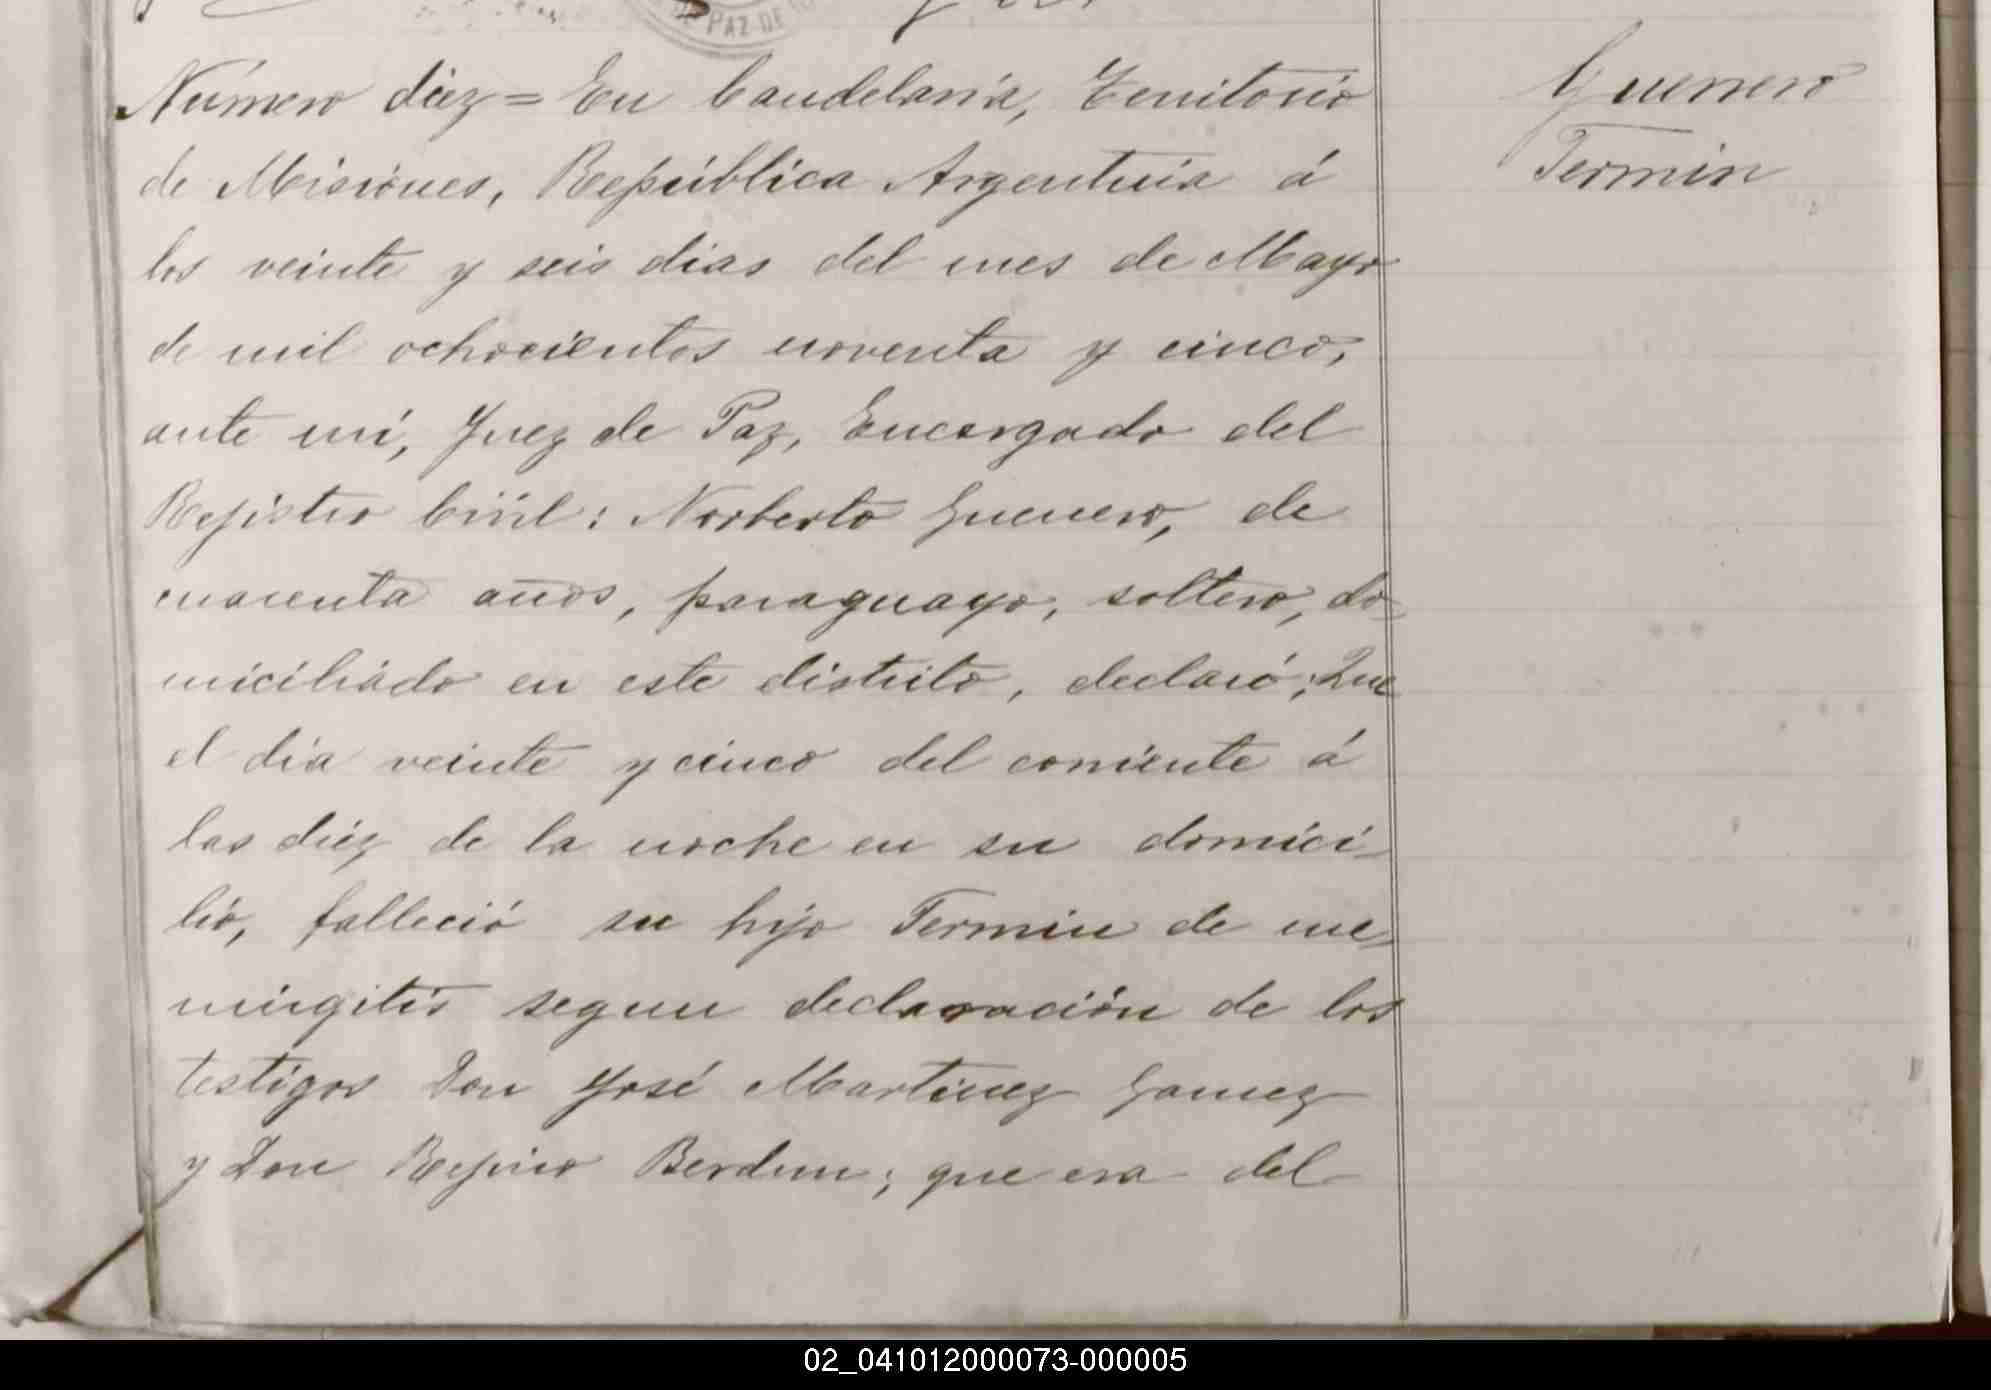 DE PAZ DE
Número diez = En Candelaria, Territorio
de Misiones, República Argentina á
los veinte y seis dias del mes de Mayo
de mil ochocientos noventa y cinco,
ante mí, Juez de Paz, Encargado del
Rejistro Civil: Norberto Guerrero, de
cuarenta años, paraguayo, soltero, do-
miciliado en este distrito, declaró; Que
el dia veinte y cinco del corriente á
las diez de la noche en su domici-
lio, falleció su hijo Fermin de me-
ningitis segun declaración de los
testigos Don José Martinez Gamez
y Don Rejino Berdun; que era del
Guerrero
Fermin
02_041012000073-000005